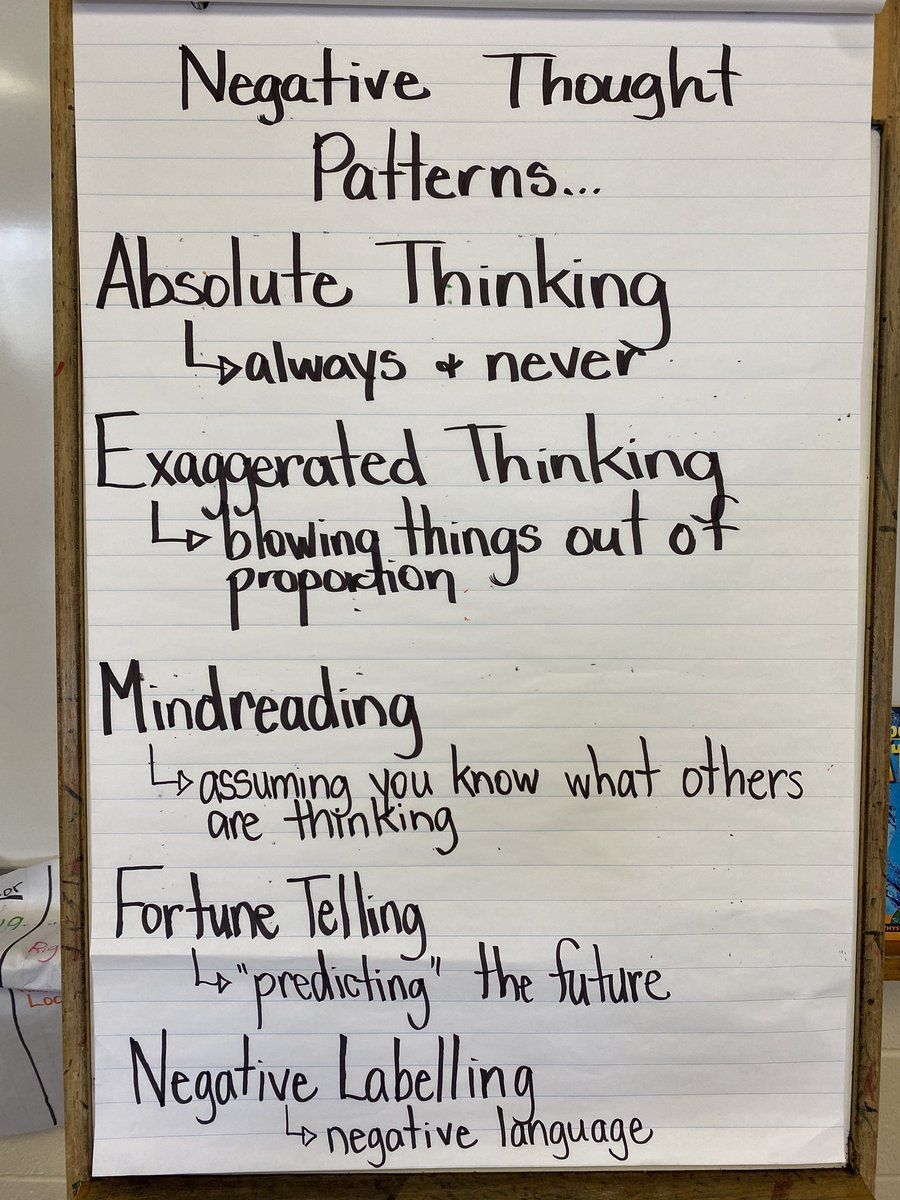 Negative Thought
Patterns...
Absolute Thinking
↳always & never
Exaggerated Thinking
↳blowing things out of
proportion
Mindreading
↳assuming you know what others
are thinking
Fortune Telling
↳"predicting" the future
Negative Labelling
↳negative language